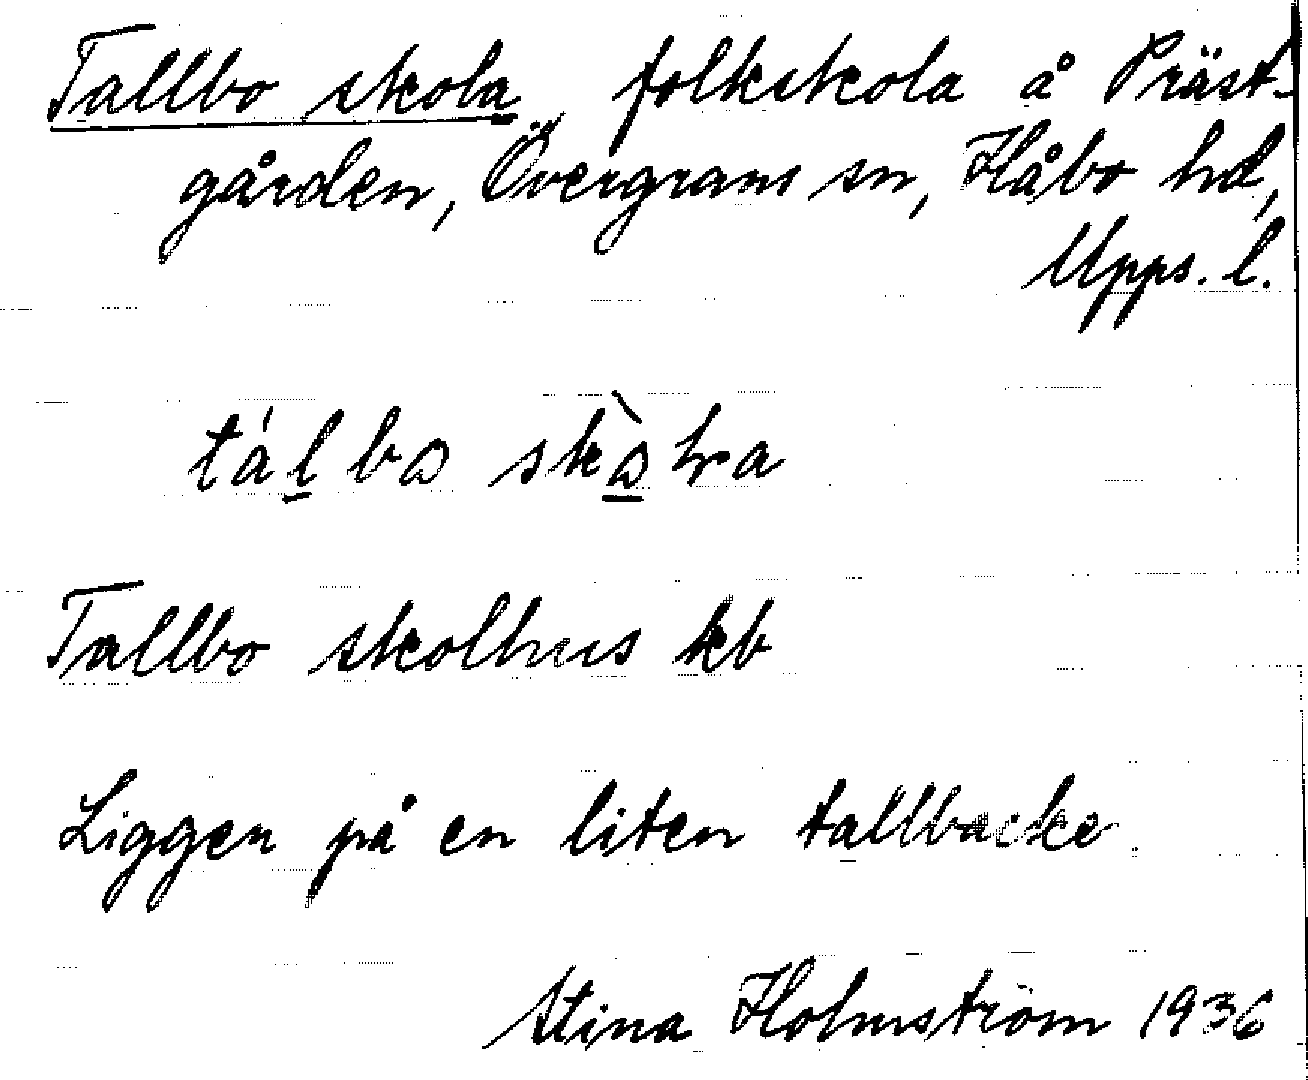 Tallbo skola, folkskola å Präst-
gården, Övergrans sn, Håbo hd,
Upps. l.
Tallbo skolhus kb
Ligger på en liten tallbacke.
Stina Holmström 1936